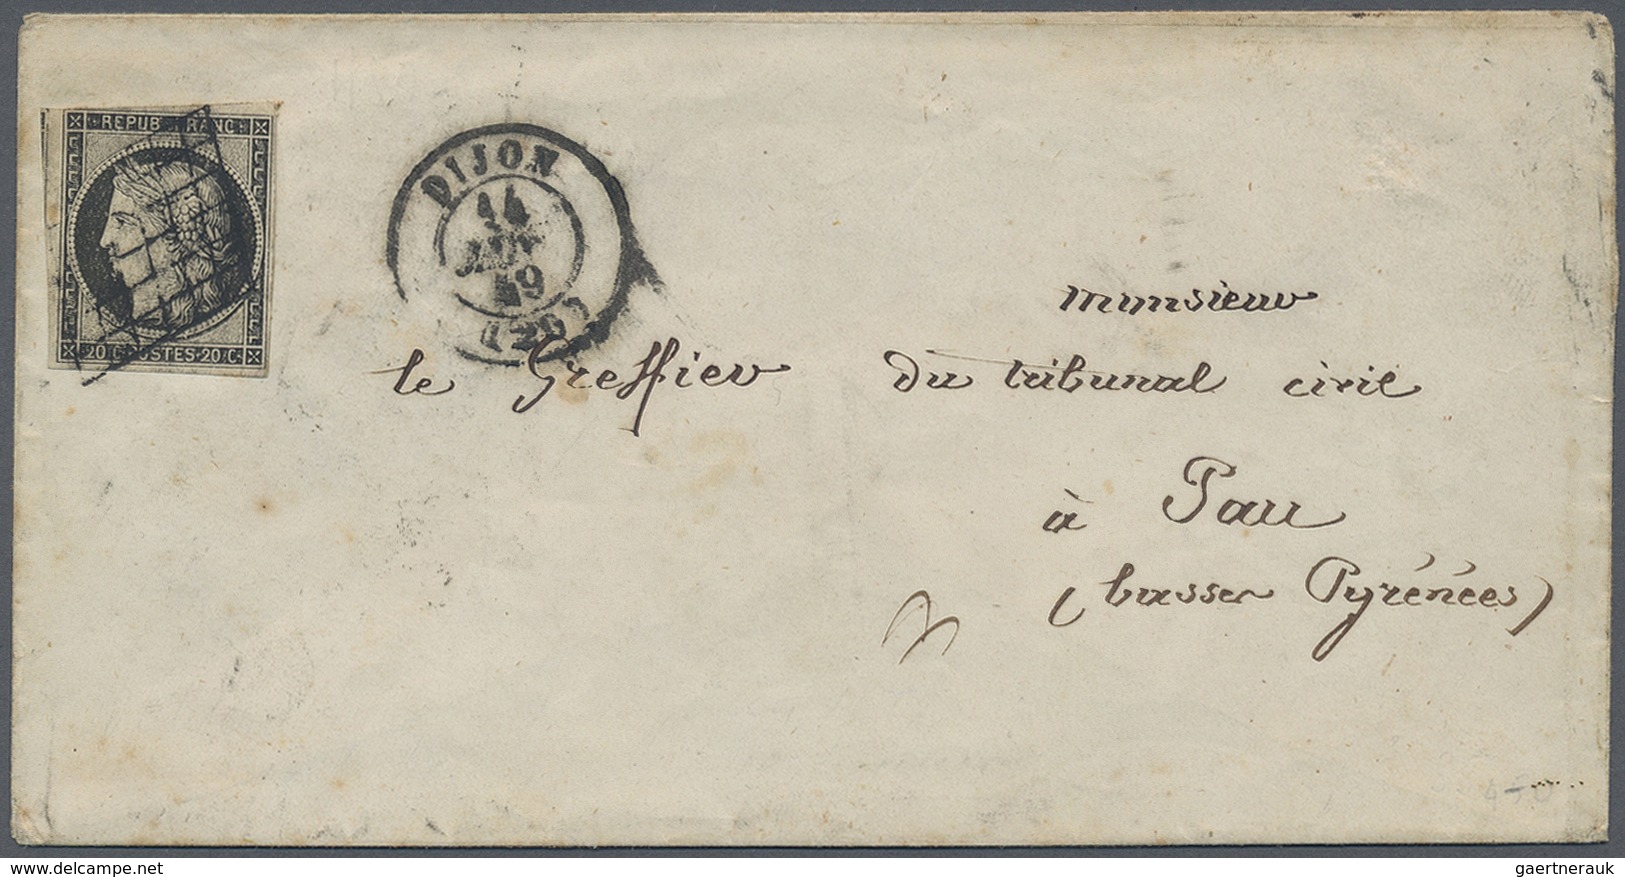 REPUB FRANC
20 C. POSTES 20 C.
DIJON
14
49
(20)
monsieur
le Greffier du tribunal civil
à Pau
(basses Pyrénées)
delcampe.net
gaertnerauk